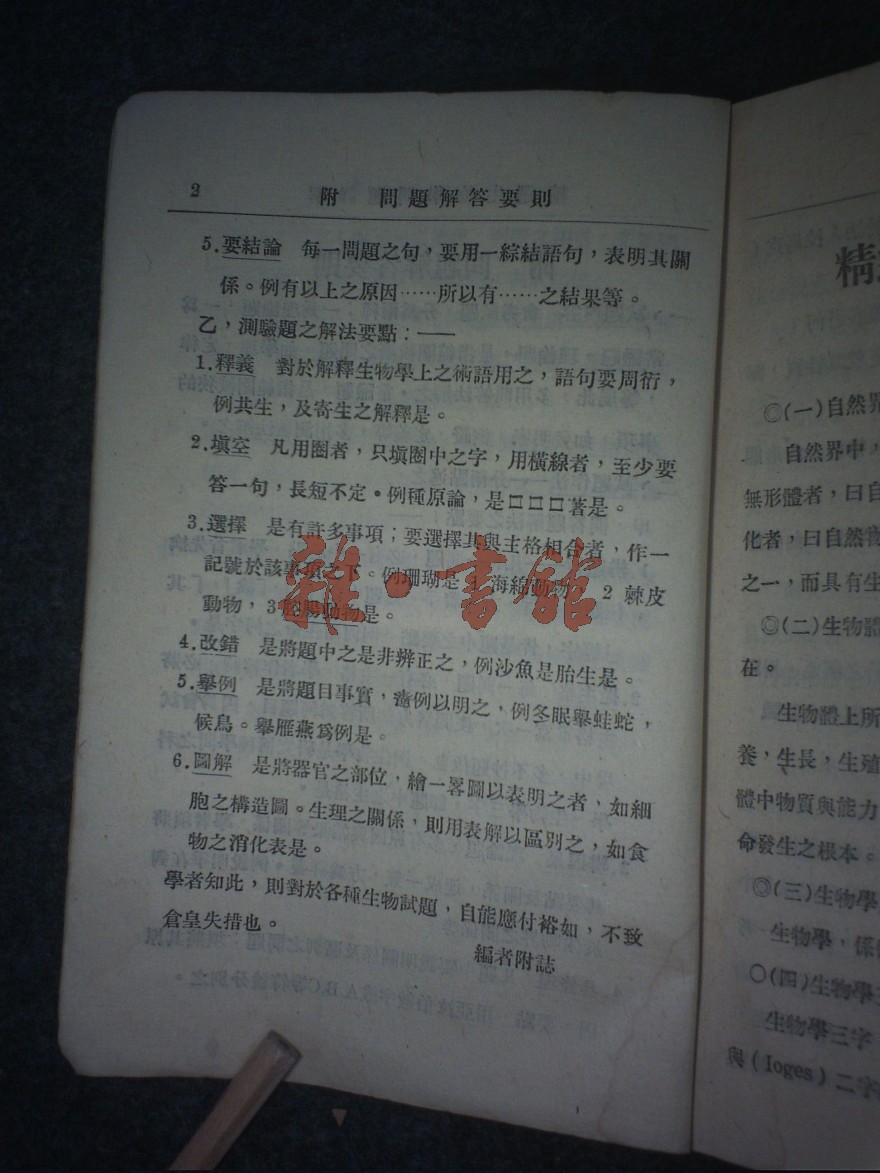 2
附 問題解答要則
5.要結論 每一問題之句，要用一綜結語句，表明其關
係。例有以上之原因……所以有……之結果等。
乙，測驗題之解法要點：——
1.釋義 對於解釋生物學上之術語用之，語句要周衍，
例共生，及寄生之解釋是。
2.填空 凡用圈者，只填圈中之字，用橫線者，至少要
答一句，長短不定。例種原論，是口口口著是。
3.選擇 是有許多事項；要選擇其與主格相合者，作一
記號於該事項之下。例珊瑚是 1 海綿動物， 2 棘皮
動物，3腔腸動物是。
4.改錯 是將題中之是非辨正之，例沙魚是胎生是。
5.舉例 是將題目事實，舉例以明之，例冬眠舉蛙蛇，
候鳥。舉雁燕爲例是。
6.圖解 是將器官之部位，繪一畧圖以表明之者，如細
胞之構造圖。生理之關係，則用表解以區別之，如食
物之消化表是。
學者知此，則對於各種生物試題，自能應付裕如，不致
倉皇失措也。
編者附誌
雜·書館
精
◎(一)自然界
自然界中，
無形體者，曰自
化者，曰自然物
之一，而具有生
◎(二)生物體
在。
生物體上所
養，生長，生殖
體中物質與能力
命發生之根本。
◎(三)生物學
生物學，係
○(四)生物學
生物學三字
與(loges)二字